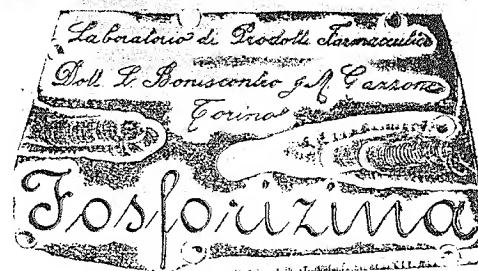 Laboratorio di Prodotti Farmaceutici
Dott. L. Boniscontro g M. Gazzone
Torino
Fosforizina